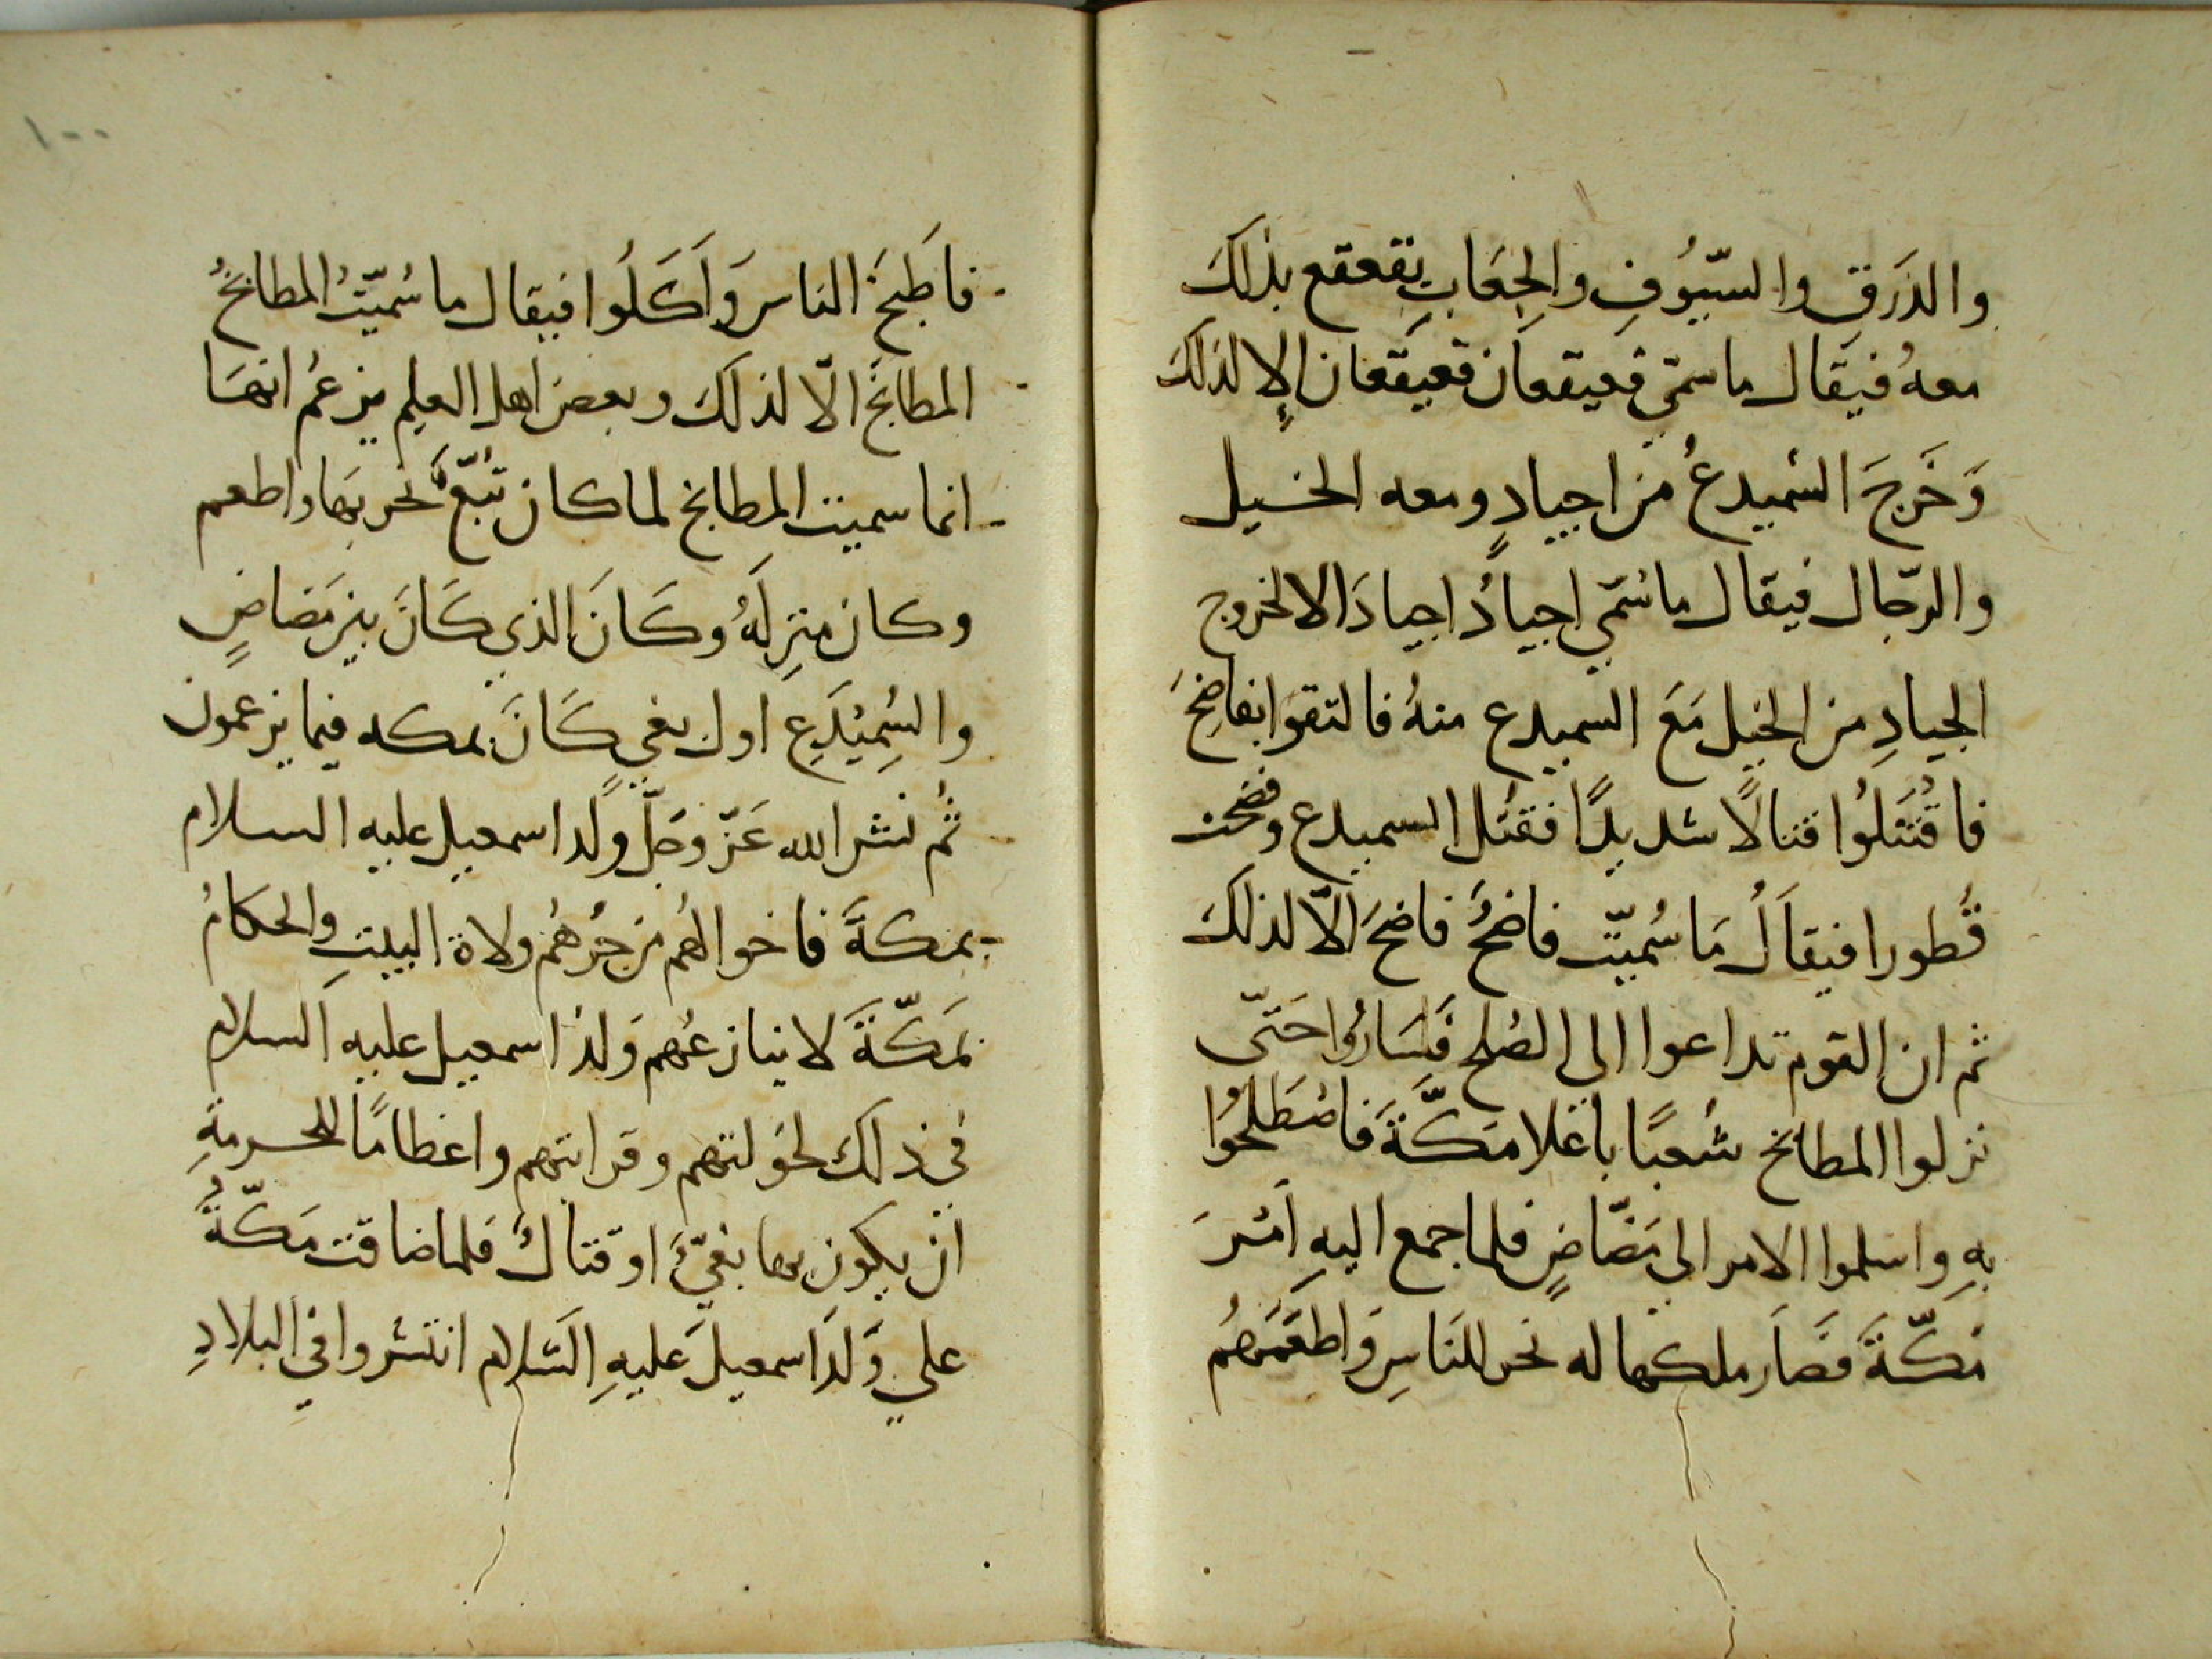 والدَرَقِ والسّيُوفِ والجِعَابِ تقعقع بذلكَ
معهُ فيقال ما سمّي قعيقعان قعيقعان الا لذلكَ
وَخَرجَ السّميدعُ من اجيادٍ ومعه الخيل
والرّجال فيقال ما سُمّي اجيادُ اجيادَ الا لخروج
الجيادِ من الخيل مَعَ السميدع منهُ فالتقوا بفاضحَ
فاقُتتَلُوا قتالًا شديدًا فقتل السميدع وفضحت
قُطورا فيقالُ مَا سُميّت فاضحُ فاضحَ الّا لذلكَ
ثم ان القوم تداعوا الي الصُلح فَسَارُوا حَتّى
نزلوا المطابخ شعبًا باعلا مَكَّةَ فاصْطَلحُوا
بهِ واسلموا الامر الي مَضّاضٍ فلما جمع اليهِ امْرَ
مَكّةَ فَصَار ملكها له نحر للنَاسِ وَاطعَمَهُم
فاطبخَ الناس وَاَكَلُوا فيقال ما سُميّتُ المطابخُ
المطابخَ الّا لذلكَ وبعض اهل العلم يزعمُ انهَا
انما سميت المطابخ لما كان تُبّعٌ نحر بهَا واطعم
وكان منزِلَهُ وكَانَ الذي كَانَ بين مَضاضٍ
والسِميْدَعِ اول بغيٍ كَانَ بمكه فيما يزعمون
ثُم نشر الله عَزّ وَجَلّ ولد اسمعيل عليه السلام
بمكةَ فاخوالهُم من جُرْهُم ولاة البيتِ والحكامُ
بمَكّةَ لا ينازعُهم وَلدُ اسمعيل عليه السلام
في ذلك لخولتهم وقرابتهم واعظامًا للحرمةِ
ان يكون بها بغيٌ او قتالٌ فلما ضاقت مَكّةُ
علي وَلَد اسمعيلَ عليهِ السّلام انتشروا في البلادِ
١٠٠